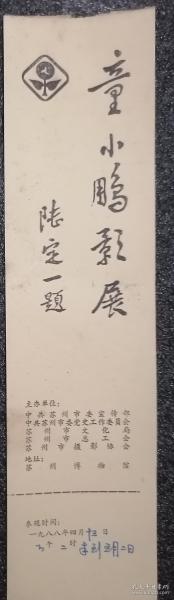 童小鹏影展
陆定一题
主办单位：
中共苏州市委宣传部
中共苏州市委党史工作委员会
苏州市文化局
苏州市总工会
苏州市摄影协会
地址：
苏州博物馆
参观时间：
一九八八年四月廿三日
到五月二日